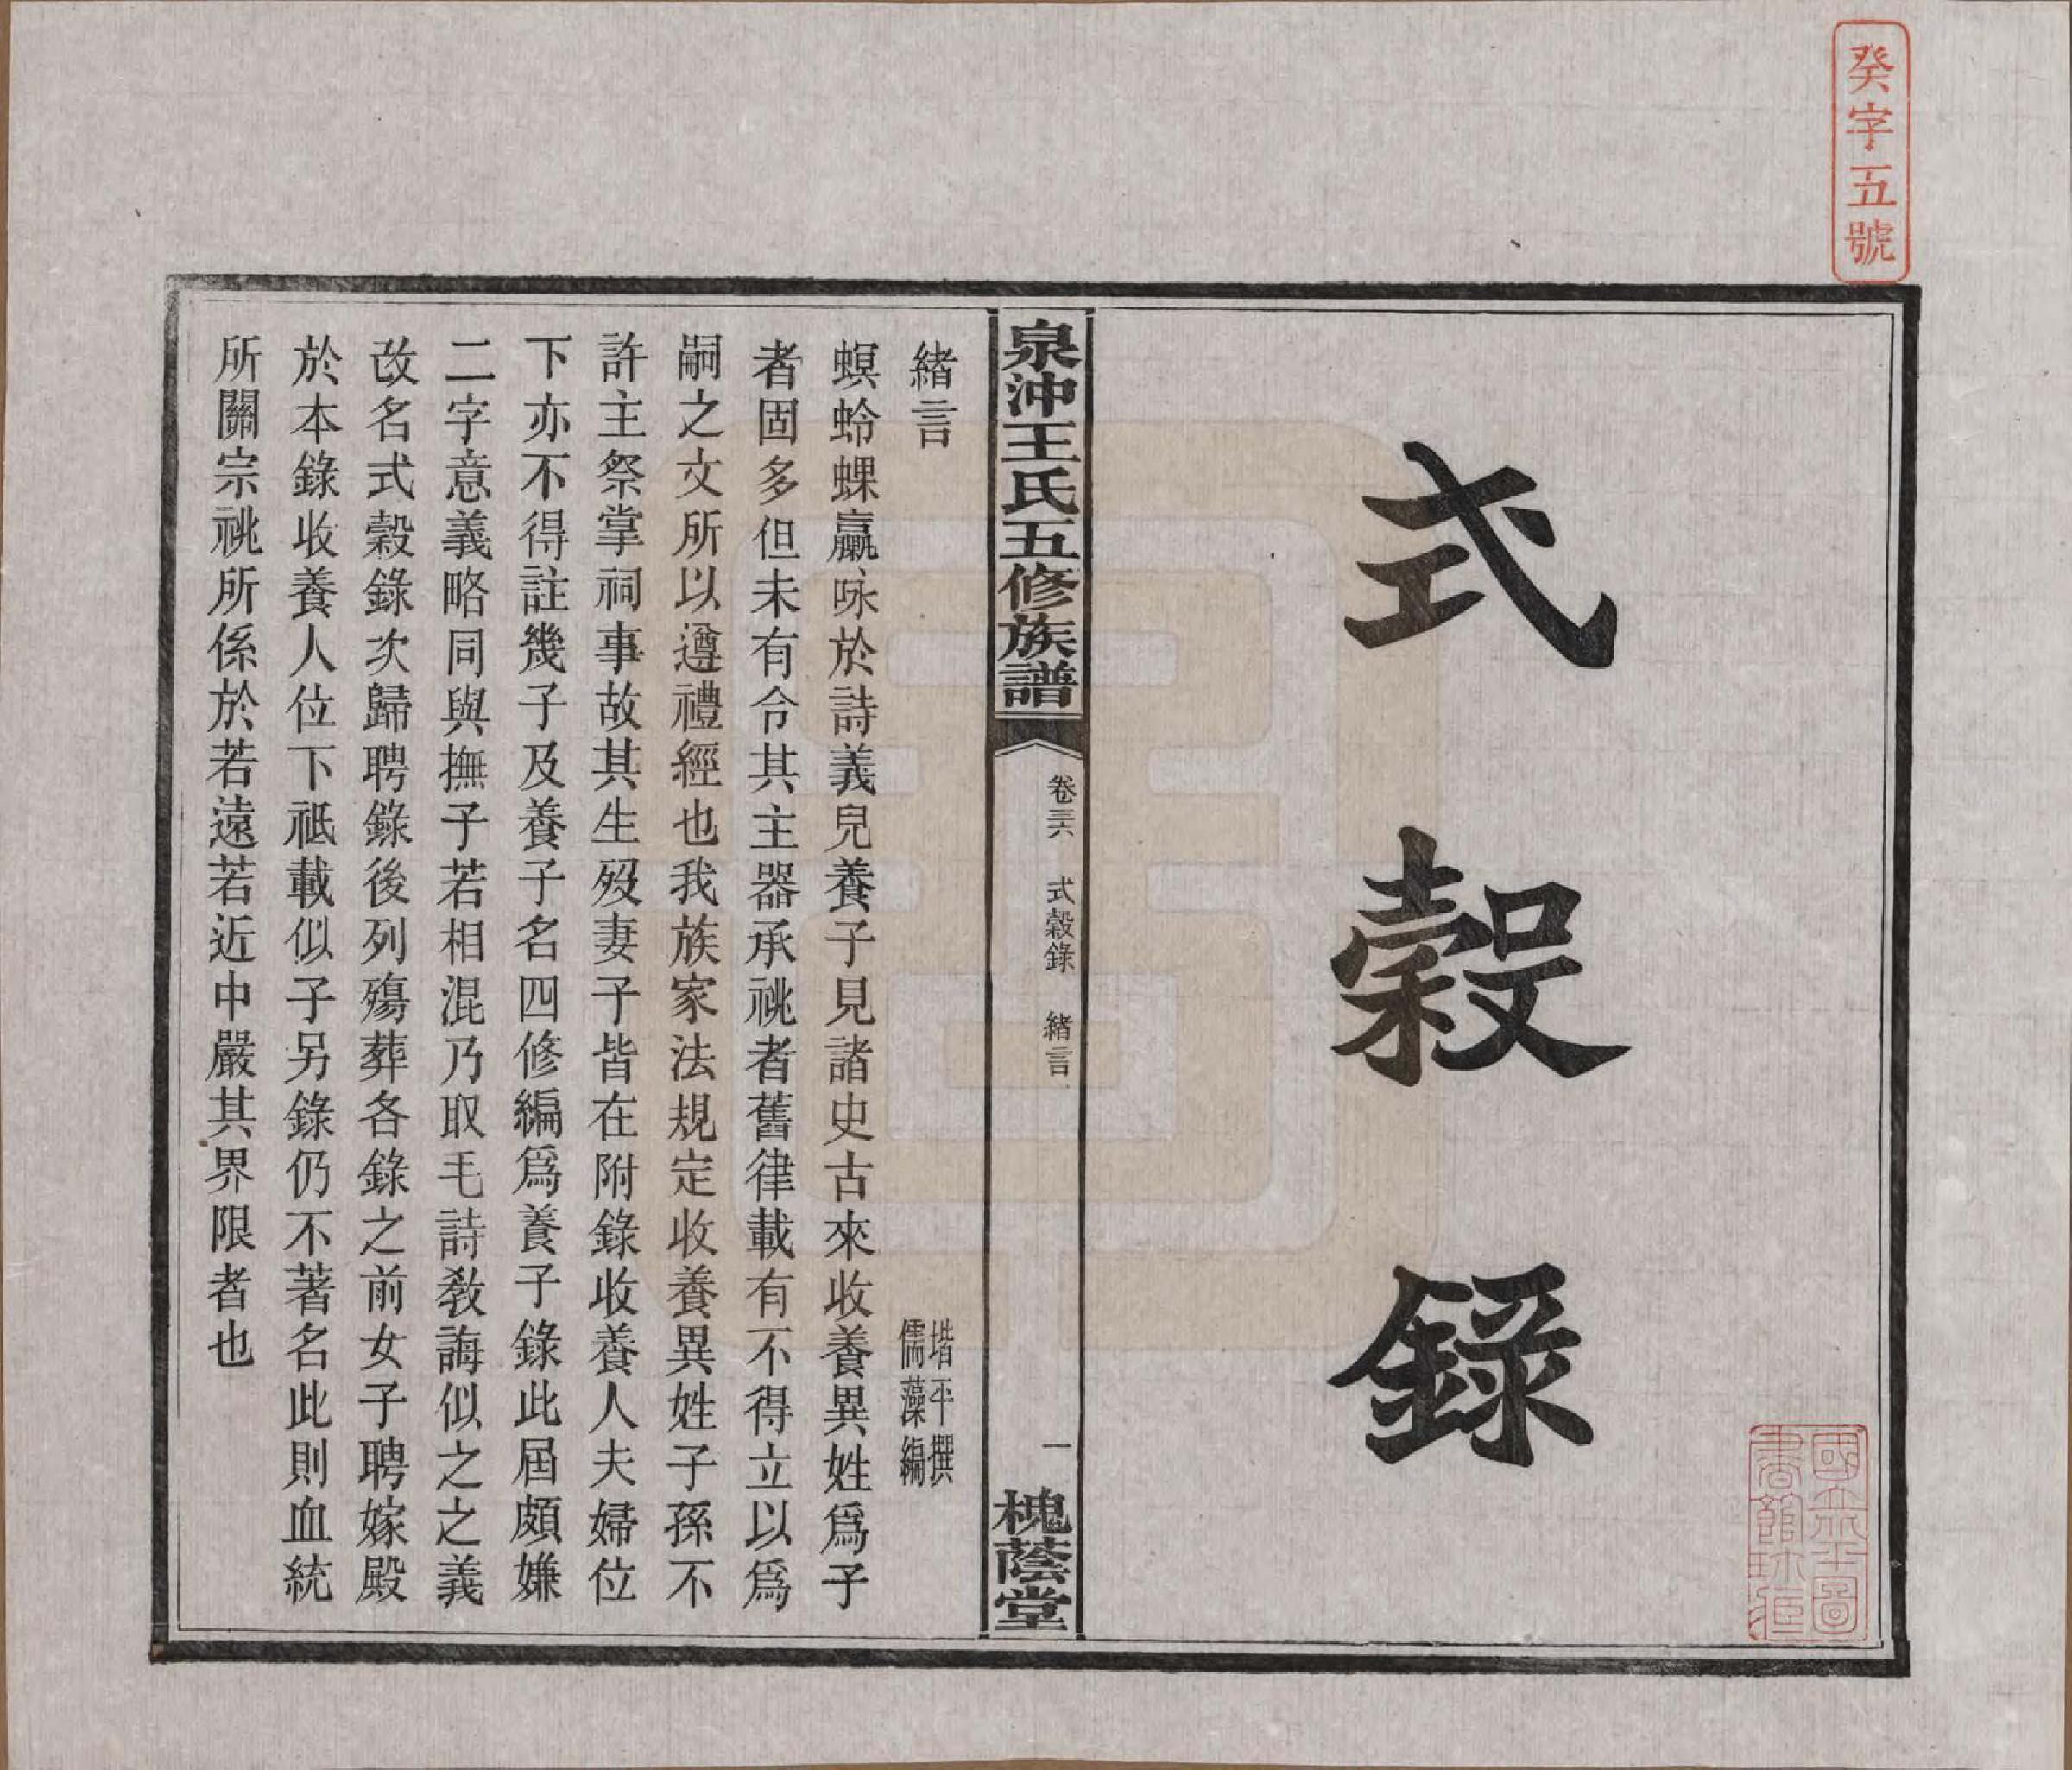 癸字五號
式穀錄
國立北平圖
書館珍藏
泉沖王氏五修族譜
卷三六
式穀錄
緒言
一
槐蔭堂
緒言
堦平撰
儒藻編
螟蛉蜾蠃詠於詩義兒養子見諸史古來收養異姓爲子
者固多但未有令其主器承祧者舊律載有不得立以爲
嗣之文所以遵禮經也我族家法規定收養異姓子孫不
許主祭掌祠事故其生歿妻子皆在附錄收養人夫婦位
下亦不得註幾子及養子名四修編爲養子錄此屆頗嫌
二字意義略同與撫子若相混乃取毛詩敎誨似之之義
改名式穀錄次歸聘錄後列殤葬各錄之前女子聘嫁殿
於本錄收養人位下祗載似子另錄仍不著名此則血統
所關宗祧所係於若遠若近中嚴其界限者也